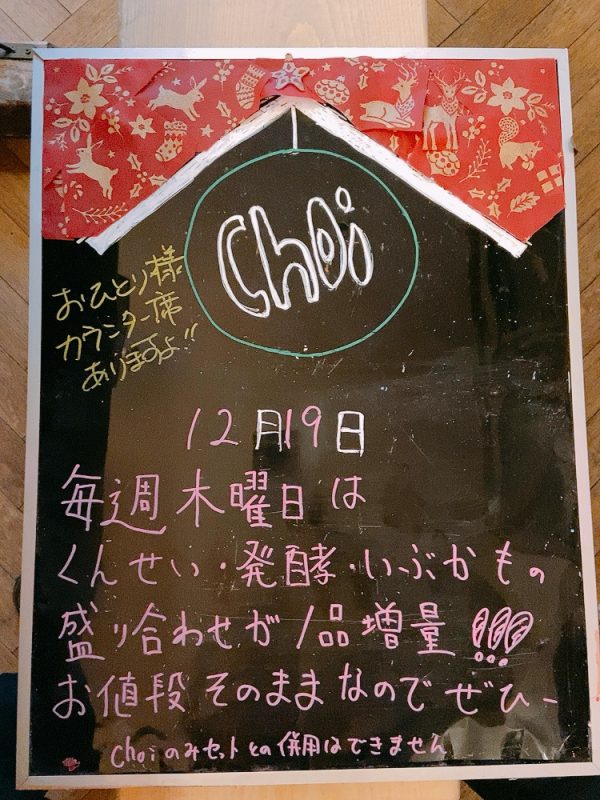 Choi
おひとり様
カウンター席
ありますよ!!
12月19日
毎週木曜日は
くんせい・発酵・いぶかもの
盛り合わせが1品増量!!!
お値段そのままなのでぜひー
choiのみセットとの併用はできません